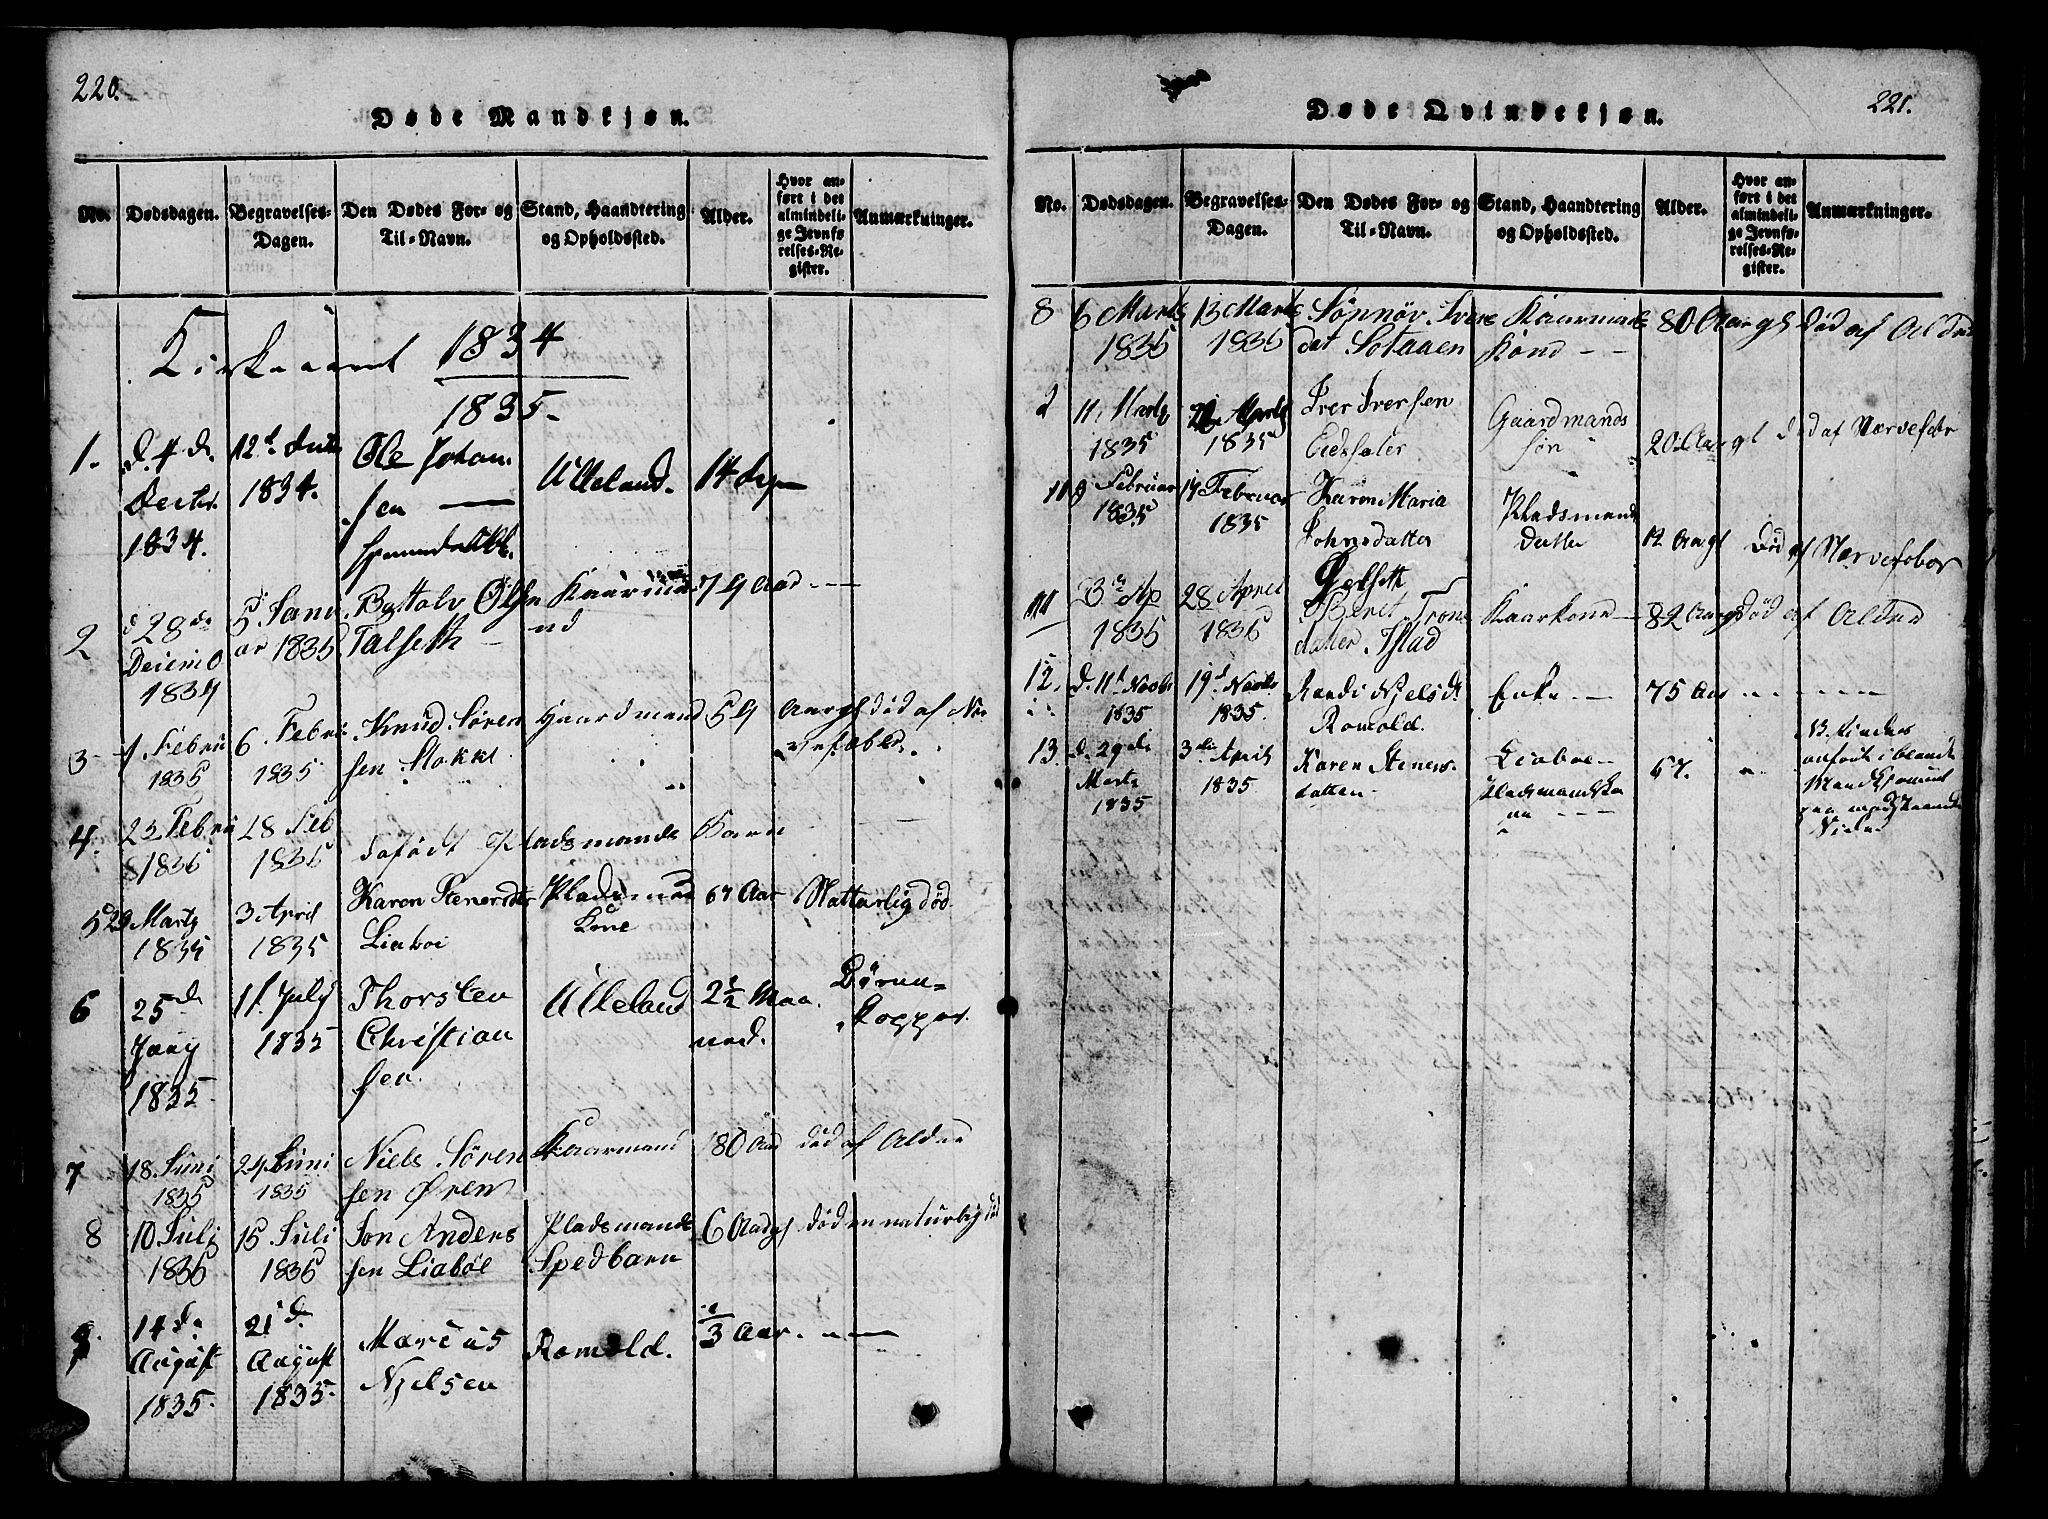 220.
Døde Mandkjøn.
No.
Dødsdagen.
Begravelses-
Dagen.
Den Dødes For- og
Til-Navn.
Stand, Haandtering
og Opholdssted.
Alder.
Hvor an-
ført i det
almindeli-
ge Jevnfø-
relses-Re-
gister.
Anmærkninger.
Kirkeaaret 1834
1835.
1.
d. 4 de
Decbr.
1834.
12te
1834.
Ole Johan
sen
Ulleland.
14
2
d 28 de
1834
5 Janu
ar 1835
Olsn
Talseth
79 Aar
3
1 Febru
1835
6. Febru
1835
Knud Søren
sen Stokke
Gaardmand
59
Aar gl død af Ner
vefeber
4.
23 Febru
1835
28 Feb
1835
døfødt Pladsmands
Barn
5
29 Marts
1835
3 April
1835
Karen Stenersdtr
Liabøe
Pladsmands
Kone
67 Aar
Naturlig død
6
25 de
Juny
1835
1. July
1835
Thorsten
Christian
sen.
Ulleland
2 1/2 Maa
ned.
Børne-
Kopper.
7
18. Juni
1835
24 Juni
1835
Niels Søren
sen Ören
Kaarmand
80 Aar
død af Alder
8
10 Juli
1835
15 Juli
1835
Jon Anders
sen Liabøe
Pladsmands
Spedbarn
6
død en naturlig død
9.
14 de
August
1835.
21 d.
August
1835.
Marcus
Njelsen
Romold.
1/3 Aar.
221.
Døde Qvindekjøn.
No.
Dødsdagen.
Begravelses-
Dagen.
Den Dødes For- og
Til-Navn.
Stand, Haandtering
og Opholdssted.
Alder.
Hvor an-
ført i det
almindeli-
ge Jevnfø-
relses-Re-
gister.
Anmærkninger.
8
6 Marts
1835
13 Marts
1835
Sönnöv Ivers
dat Sotaaen
Kaarmands
Kone
80 Aar gl
Død af Alder
11. Marts
1835
Marts
1835
Iver Iversen
Eidssæter
Gaardmands
søn
20 Aar gl
død af Nervefebr
10
Februar
1835
14 Februar
1835
Karen Maria
Johnsdatter
Pladsmand
datter
12 Aar gl
Død af Nervefeber
11
23 Ap
1835
28 April
1835
Beret Tron
datter Istad
Kaarkone
82 Aar gl
død af Alder
12.
d. 11te Novbr
1835
19d Novbr
1835.
Randi Njelsdt
Romold.
Enke
75 Aar
13.
d. 29 de
Marts
1835
3de April
1835
Karen Steners-
datter
Liabøe-
Pladsmandsko
ne
67.
anført iblandt
Mandkjønnet
paa modstaaende
Side